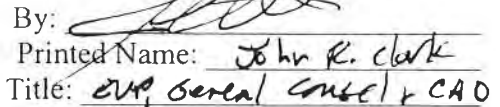 By:
Printed Name: John R. Clark
Title: EVP, General Counsel & CAO